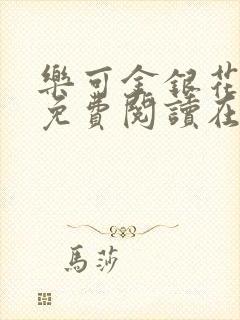 樂可金銀花
免費閱讀在
馬莎